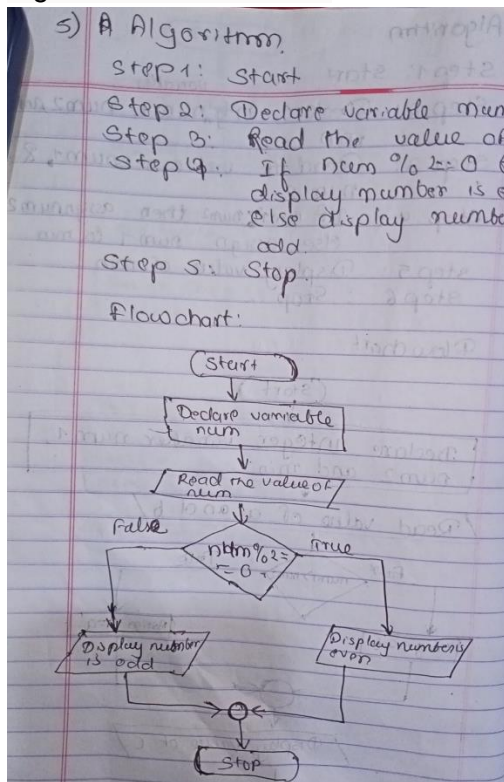 5) A Algorithm
Step 1: Start
Step 2: Declare variable num
Step 3: Read the value of
Step 4: If num % 2==0
display number is e
else display numbe
odd.
Step 5: Stop.
Flowchart:
Start
Declare vamriable
num
Read the value of
num
False
True
num%2=
=0
Display number
is odd
Display number is
even
Stop